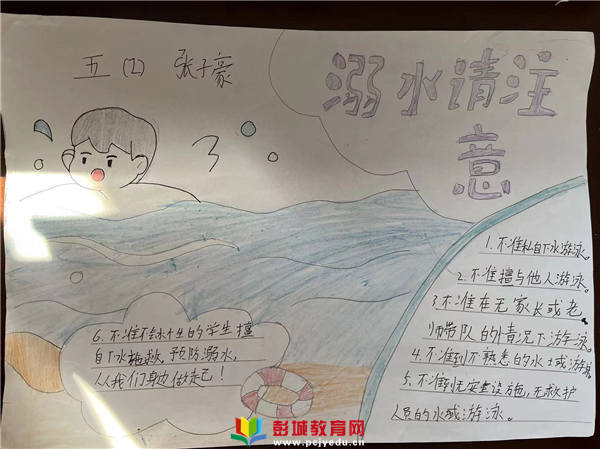 五(2) 张子豪
溺水请注
意
3
1.不准私自下水游泳。
2.不准擅与他人游泳。
3不准在无家长或老
师带队的情况下游泳。
4.不准到不熟悉的水土或游泳
5.不准到无安全设施,无救护
人员的水域游泳。
6.不准不会水性的学生擅
自下水施救,预防溺水,
从我们身边做起!
彭城教育网
www.pcjyedu.cn